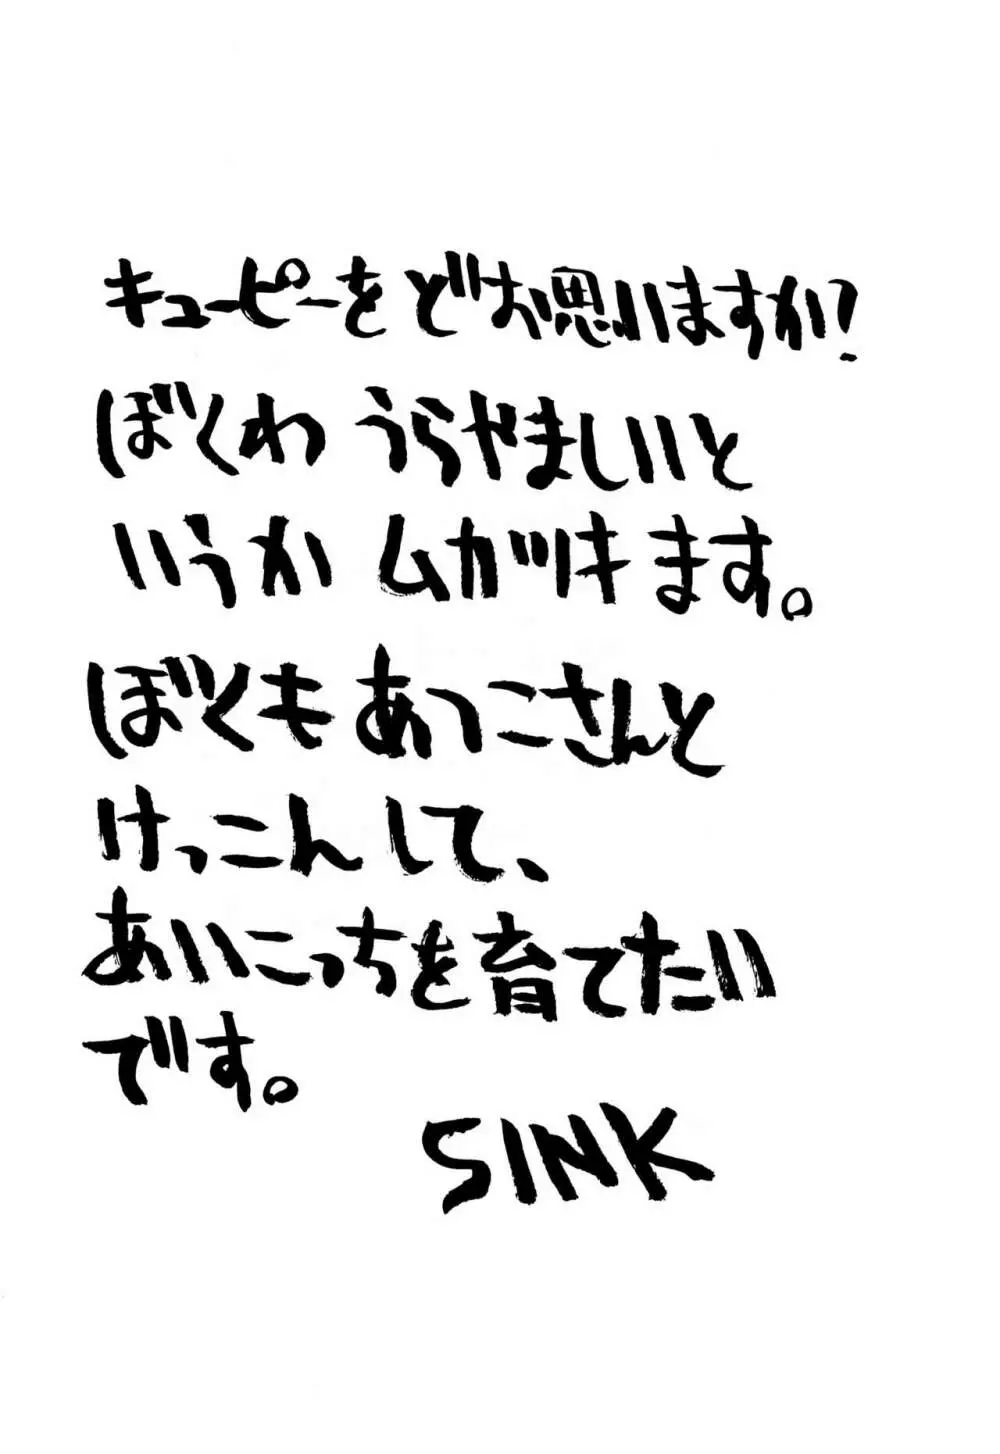 キューピーをどお思いますか?
ぼくわ うらやましいと
いうか ムカツキます。
ぼくもあつこさんと
けっこんして、
あいこっちを育てたい
です。
SINK